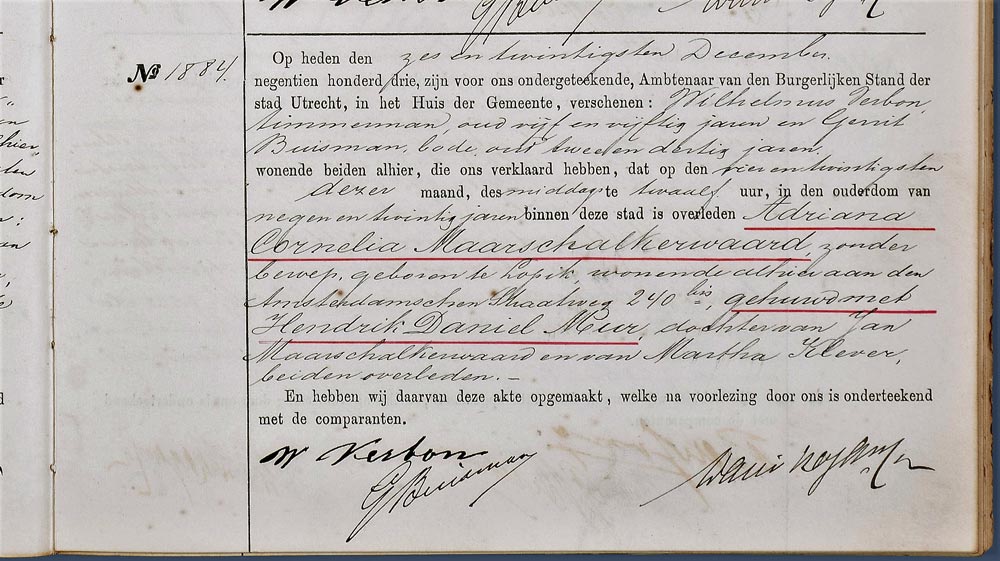 W Verbon
No 1884.
Op heden den zes en twintigsten December
negentien honderd drie, zijn voor ons ondergeteekende, Ambtenaar van den Burgerlijken Stand der
stad Utrecht, in het Huis der Gemeente, verschenen: Wilhelmus Verbon,
timmerman, oud vijf en vijftig jaren en Gerrit
Buisman, bode, oud twee en dertig jaren,
wonende beiden alhier, die ons verklaard hebben, dat op den vier en twintigsten
dezer maand, des middags te twaalf uur, in den ouderdom van
negen en twintig jaren binnen deze stad is overleden Adriana
Cornelia Maarschalkerwaard, zonder
beroep, geboren te Lopik, wonende alhier aan den
Amsterdamschen Straatweg 240 bis, gehuwd met
Hendrik Daniel Mur, dochter van Jan
Maarschalkerwaard en van Martha Klever,
beiden overleden. –
En hebben wij daarvan deze akte opgemaakt, welke na voorlezing door ons is onderteekend
met de comparanten.
W Verbon
G Buisman